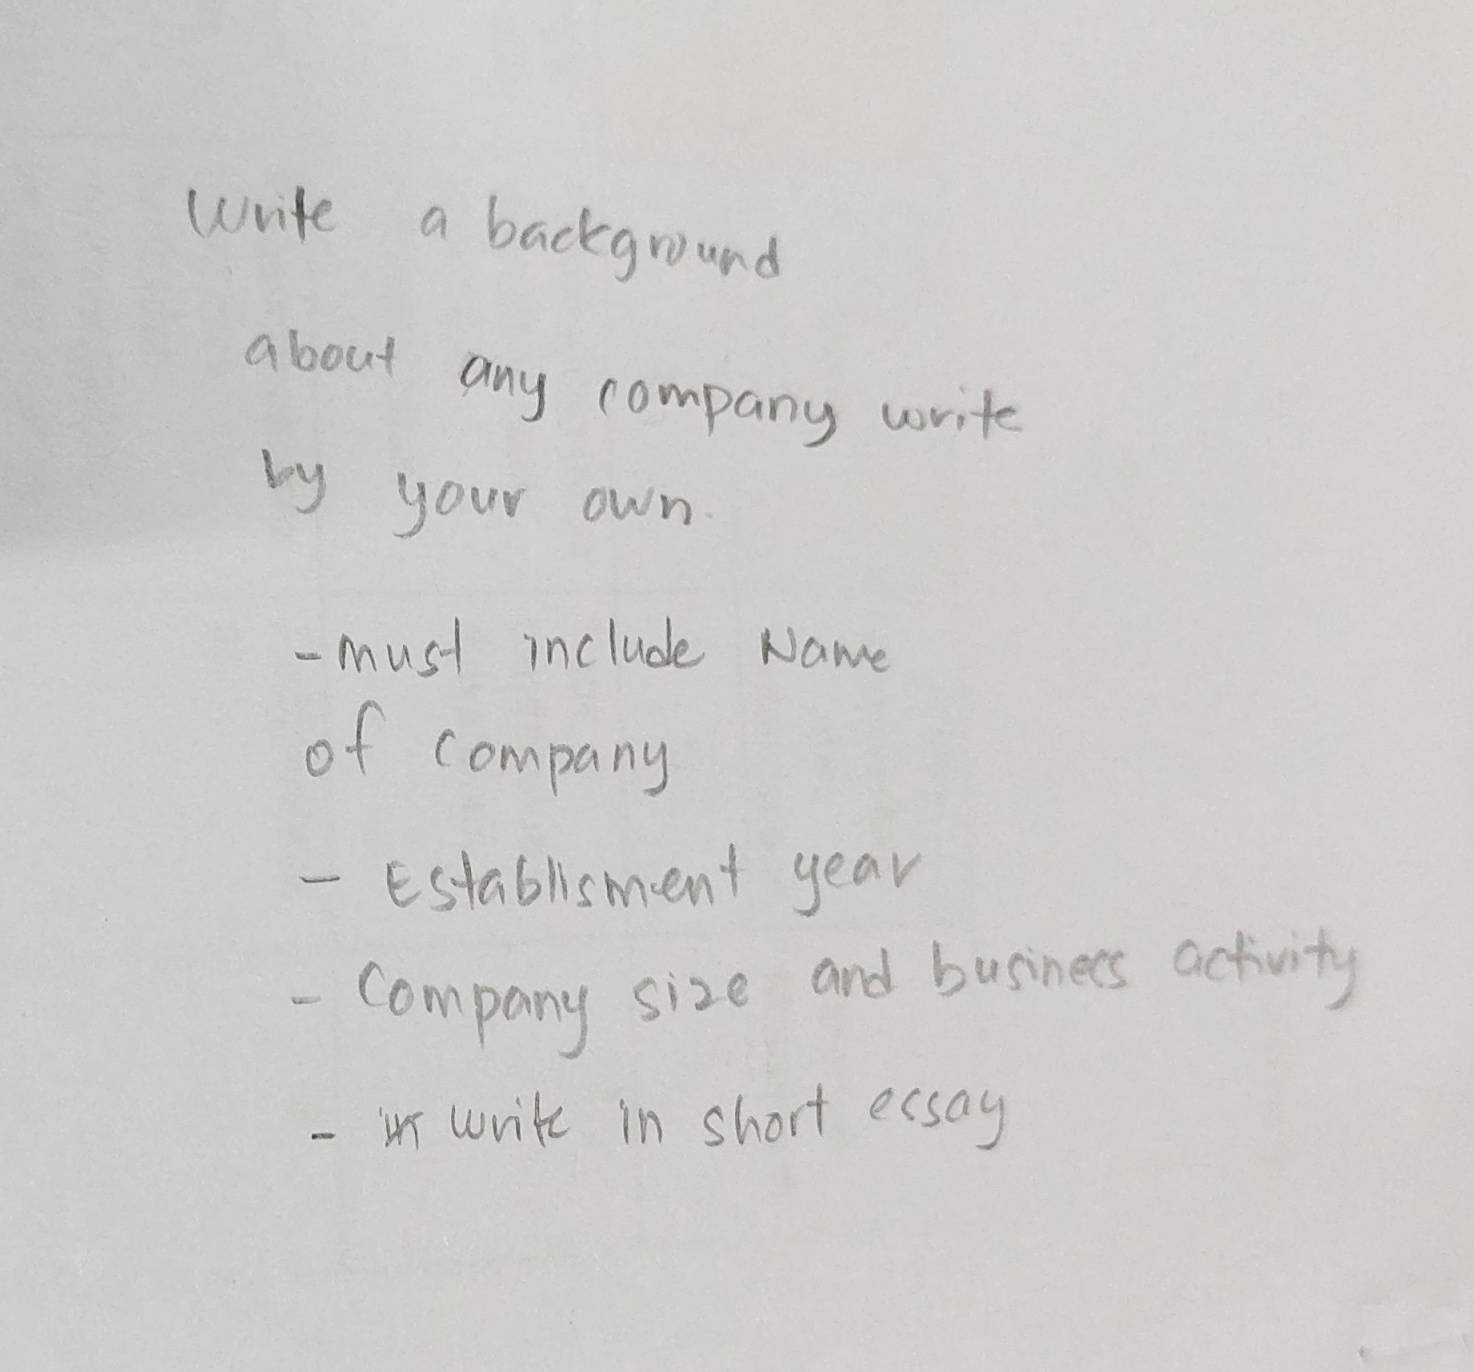 Write a background
about any company write
by your own.
- must include Name
of company
- Establisment year
- Company size and business activity
- write in short essay